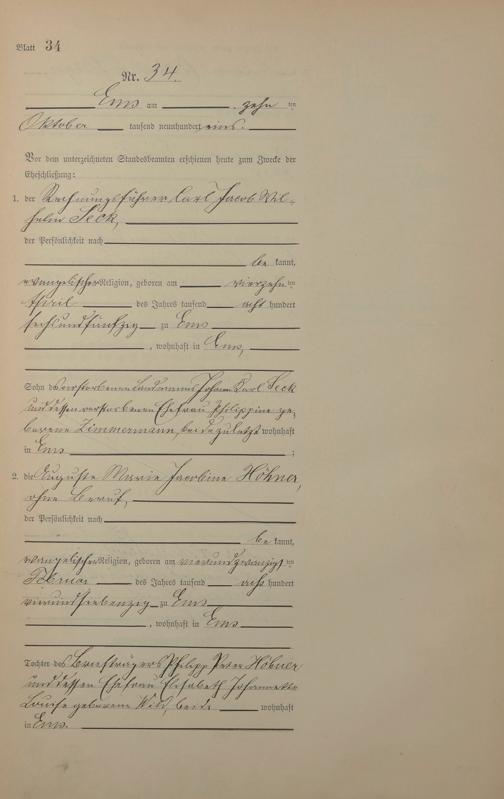 Blatt 34
Nr. 34.
Ems am zehn ten
Oktober tausend neunhundert eins.
Vor dem unterzeichneten Standesbeamten erschienen heute zum Zwecke der
Eheschließung:
1. der Rechnungsführer Carl Jacob Wil-
helm Seck,
der Persönlichkeit nach
be kannt,
evangelischer Religion, geboren am vierzehn ten
April des Jahres tausend acht hundert
sechsundfünfzig zu Ems
, wohnhaft in Ems,
Sohn des verstorbenen Kaufmanns Johann Karl Seck
und dessen verstorbenen Ehefrau Philippine ge-
borene Zimmermann, beide zuletzt wohnhaft
in Ems ;
2. die Auguste Marie Jacobine Höhner,
ohne Beruf,
der Persönlichkeit nach
be kannt,
evangelischer Religion, geboren am vierundzwanzigs ten
Februar des Jahres tausend acht hundert
vierundsiebenzig zu Ems
, wohnhaft in Ems
Tochter des Briefträgers Philipp Peter Höhner
und dessen Ehefrau Elisabeth Johannette
Louise geborene Wild, beide wohnhaft
in Ems.